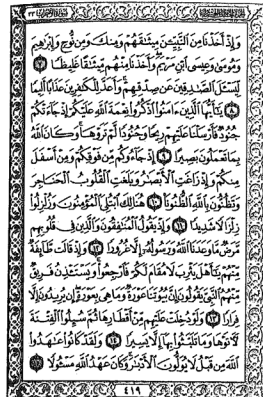 وَإِذْ أَخَذْنَا مِنَ النَّبِيِّـۧنَ مِيثَـٰقَهُمْ وَمِنكَ وَمِن نُّوحٍ وَإِبْرَٰهِيمَ
وَمُوسَىٰ وَعِيسَى ٱبْنِ مَرْيَمَ ۖ وَأَخَذْنَا مِنْهُم مِّيثَـٰقًا غَلِيظًا ٧
لِّيَسْـَٔلَ ٱلصَّـٰدِقِينَ عَن صِدْقِهِمْ ۚ وَأَعَدَّ لِلْكَـٰفِرِينَ عَذَابًا أَلِيمًا
٨ يَـٰٓأَيُّهَا ٱلَّذِينَ ءَامَنُوا۟ ٱذْكُرُوا۟ نِعْمَةَ ٱللَّهِ عَلَيْكُمْ إِذْ جَآءَتْكُمْ
جُنُودٌ فَأَرْسَلْنَا عَلَيْهِمْ رِيحًا وَجُنُودًا لَّمْ تَرَوْهَا ۚ وَكَانَ ٱللَّهُ
بِمَا تَعْمَلُونَ بَصِيرًا ٩ إِذْ جَآءُوكُم مِّن فَوْقِكُمْ وَمِنْ أَسْفَلَ
مِنكُمْ وَإِذْ زَاغَتِ ٱلْأَبْصَـٰرُ وَبَلَغَتِ ٱلْقُلُوبُ ٱلْحَنَاجِرَ
وَتَظُنُّونَ بِٱللَّهِ ٱلظُّنُونَا۠ ١٠ هُنَالِكَ ٱبْتُلِىَ ٱلْمُؤْمِنُونَ وَزُلْزِلُوا۟
زِلْزَالًا شَدِيدًا ١١ وَإِذْ يَقُولُ ٱلْمُنَـٰفِقُونَ وَٱلَّذِينَ فِى قُلُوبِهِم
مَّرَضٌ مَّا وَعَدَنَا ٱللَّهُ وَرَسُولُهُۥٓ إِلَّا غُرُورًا ١٢ وَإِذْ قَالَت طَّآئِفَةٌ
مِّنْهُمْ يَـٰٓأَهْلَ يَثْرِبَ لَا مُقَامَ لَكُمْ فَٱرْجِعُوا۟ ۚ وَيَسْتَـْٔذِنُ فَرِيقٌ
مِّنْهُمُ ٱلنَّبِىَّ يَقُولُونَ إِنَّ بُيُوتَنَا عَوْرَةٌ وَمَا هِىَ بِعَوْرَةٍ ۖ إِن يُرِيدُونَ إِلَّا
فِرَارًا ١٣ وَلَوْ دُخِلَتْ عَلَيْهِم مِّنْ أَقْطَارِهَا ثُمَّ سُئِلُوا۟ ٱلْفِتْنَةَ
لَـَٔاتَوْهَا وَمَا تَلَبَّثُوا۟ بِهَآ إِلَّا يَسِيرًا ١٤ وَلَقَدْ كَانُوا۟ عَـٰهَدُوا۟
ٱللَّهَ مِن قَبْلُ لَا يُوَلُّونَ ٱلْأَدْبَـٰرَ ۚ وَكَانَ عَهْدُ ٱللَّهِ مَسْـُٔولًا ١٥
٤١٩